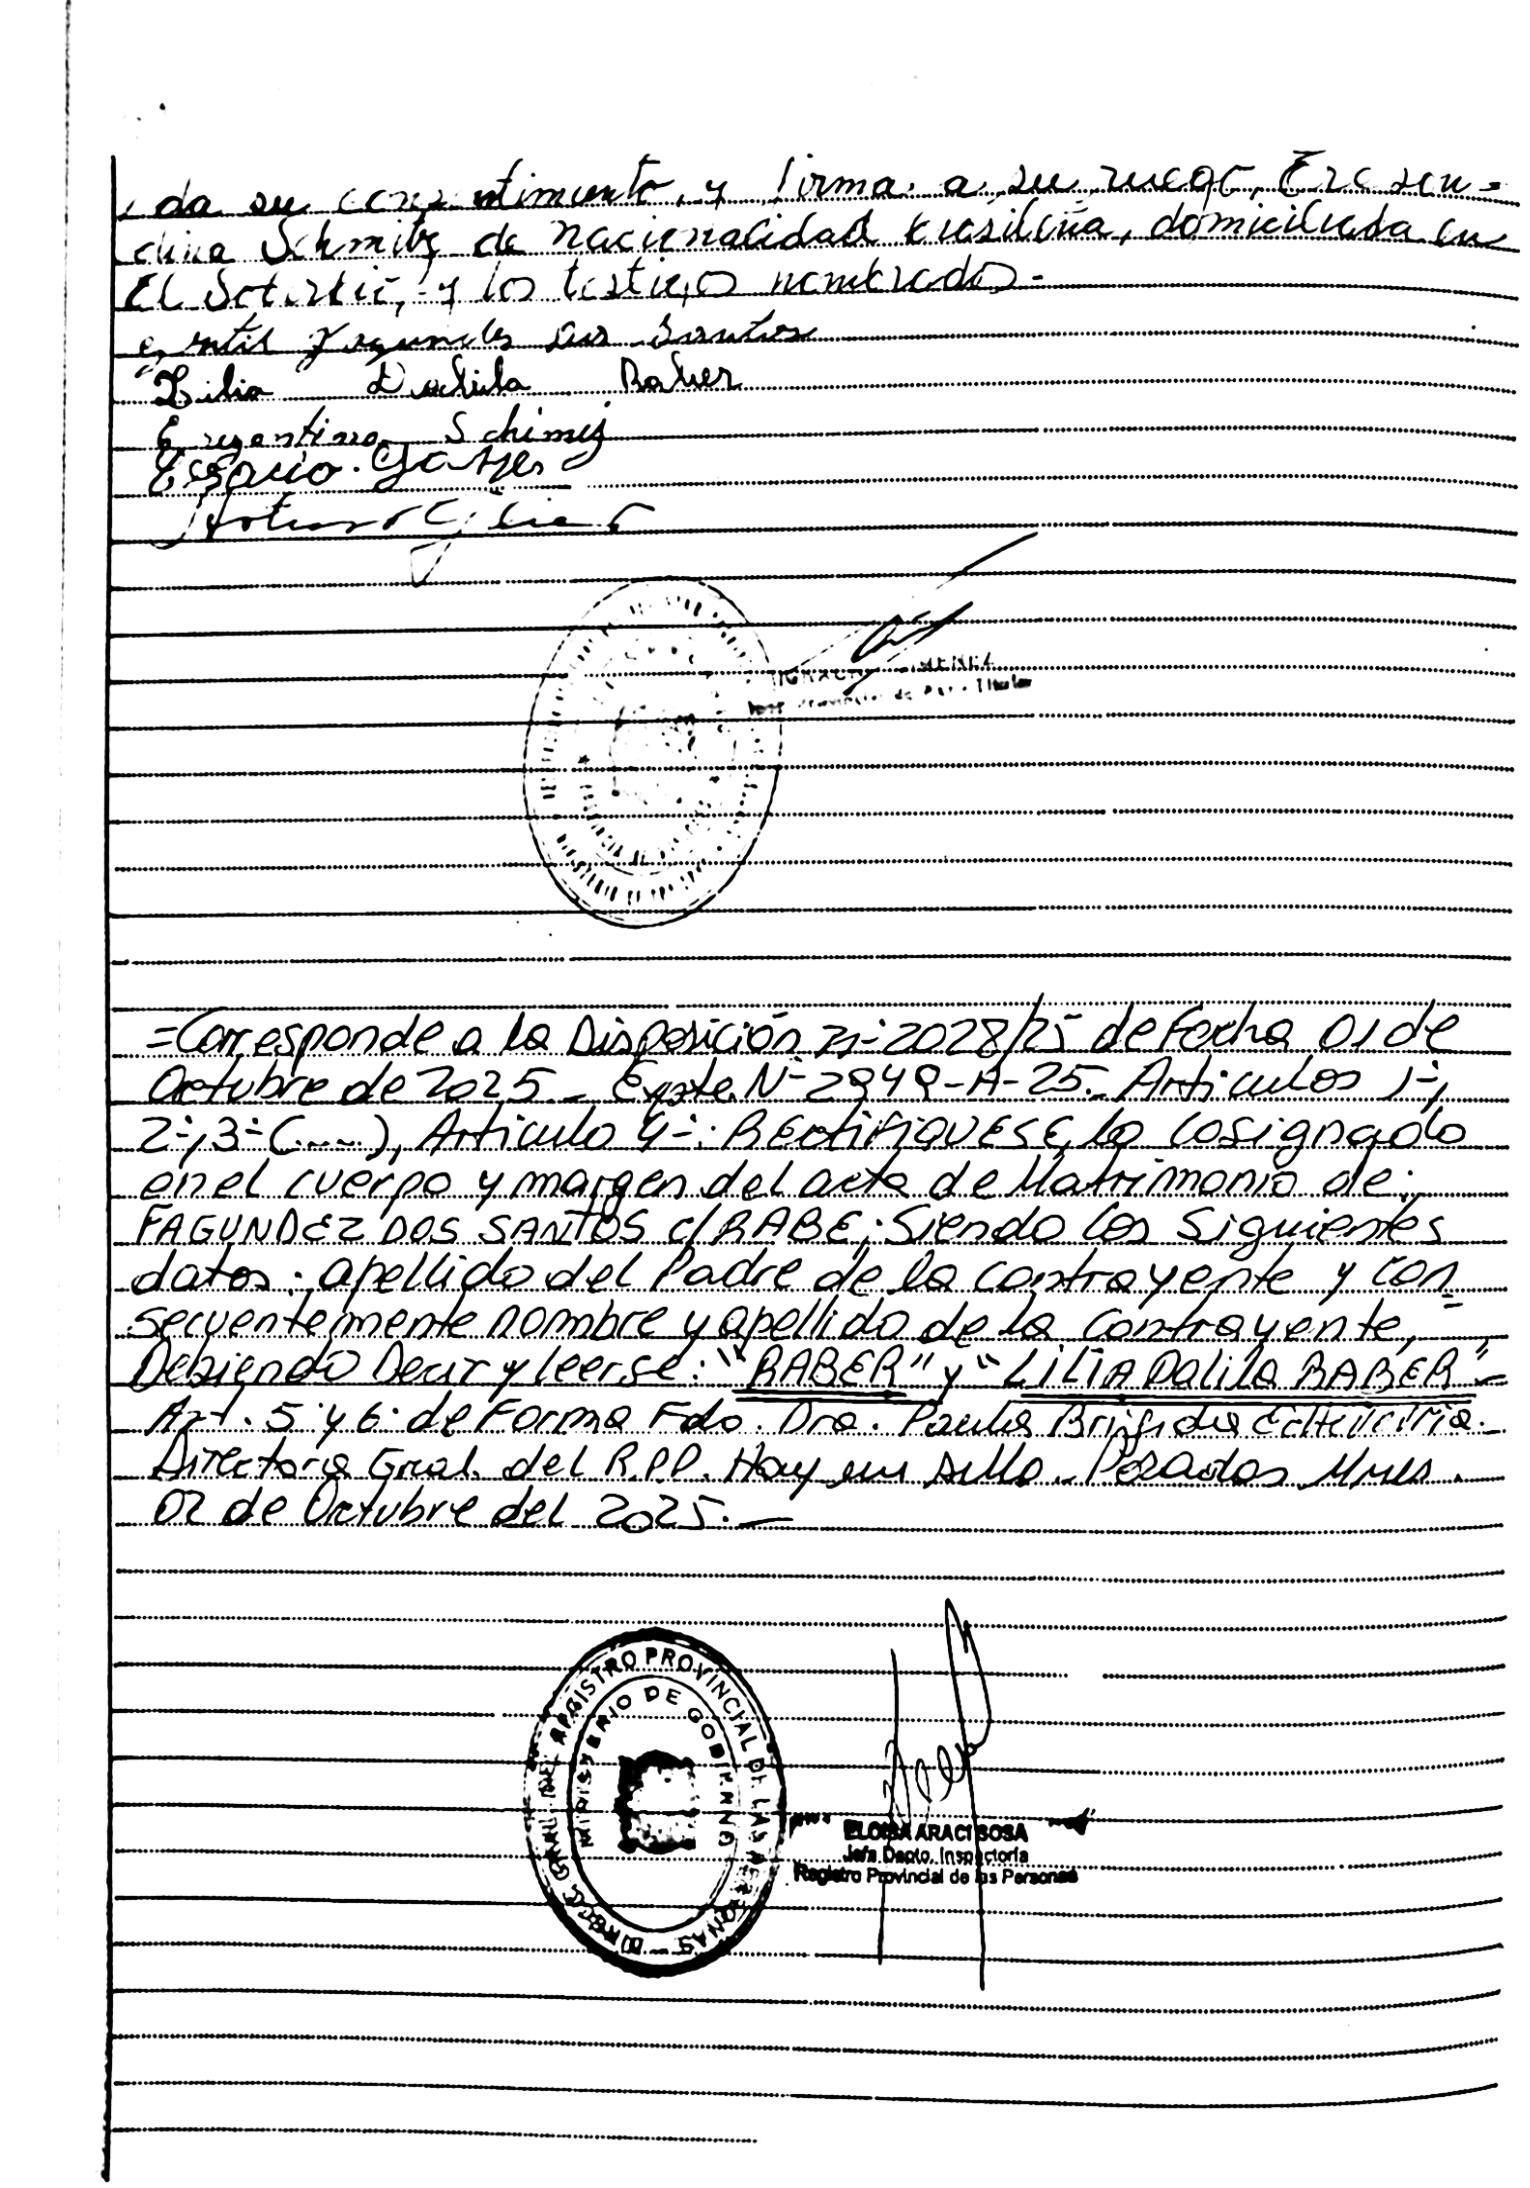 da su consentimiento, y firma a su ruego, Ercsen=
dina Schmitz de nacionalidad brasileña, domiciliada en
El Soberbio, y los testigos nombrados.-
gentil Fagundes dos Santos
Lilia Dalila Raber
Schimiz
=Corresponde a la Disposición N- 2028/25 de fecha 01 de
Octubre de 2025.- Expte. N- 2949-A-25. Articulos 1-,
2-, 3- (....), Articulo 4-: RECTIFIQUESE, lo Cosignado
en el cuerpo y margen del acta de Matrimonio de:
FAGUNDEZ DOS SANTOS c/ RABE; Siendo los Siguientes
datos: apellido del Padre de la contrayente y con
secuentemente nombre y apellido de la contrayente,
Debiendo Decir y leerse: "RABER" y "LILIA Dalila RABER"-
Art. 5 y 6 de Forma Fdo. Dra. Paula Brigida Echeverria.
Directora Gral. del R.P.P. Hay un sello. Posadas Mnes.
02 de Octubre del 2025.-
DIRECC. GRAL. DEL REGISTRO PROVINCIAL DE LAS PERSONAS -
MINISTERIO DE GOBIERNO
ELOISA ARACI SOSA
Jefa Depto. Inspectoría
Registro Provincial de las Personas